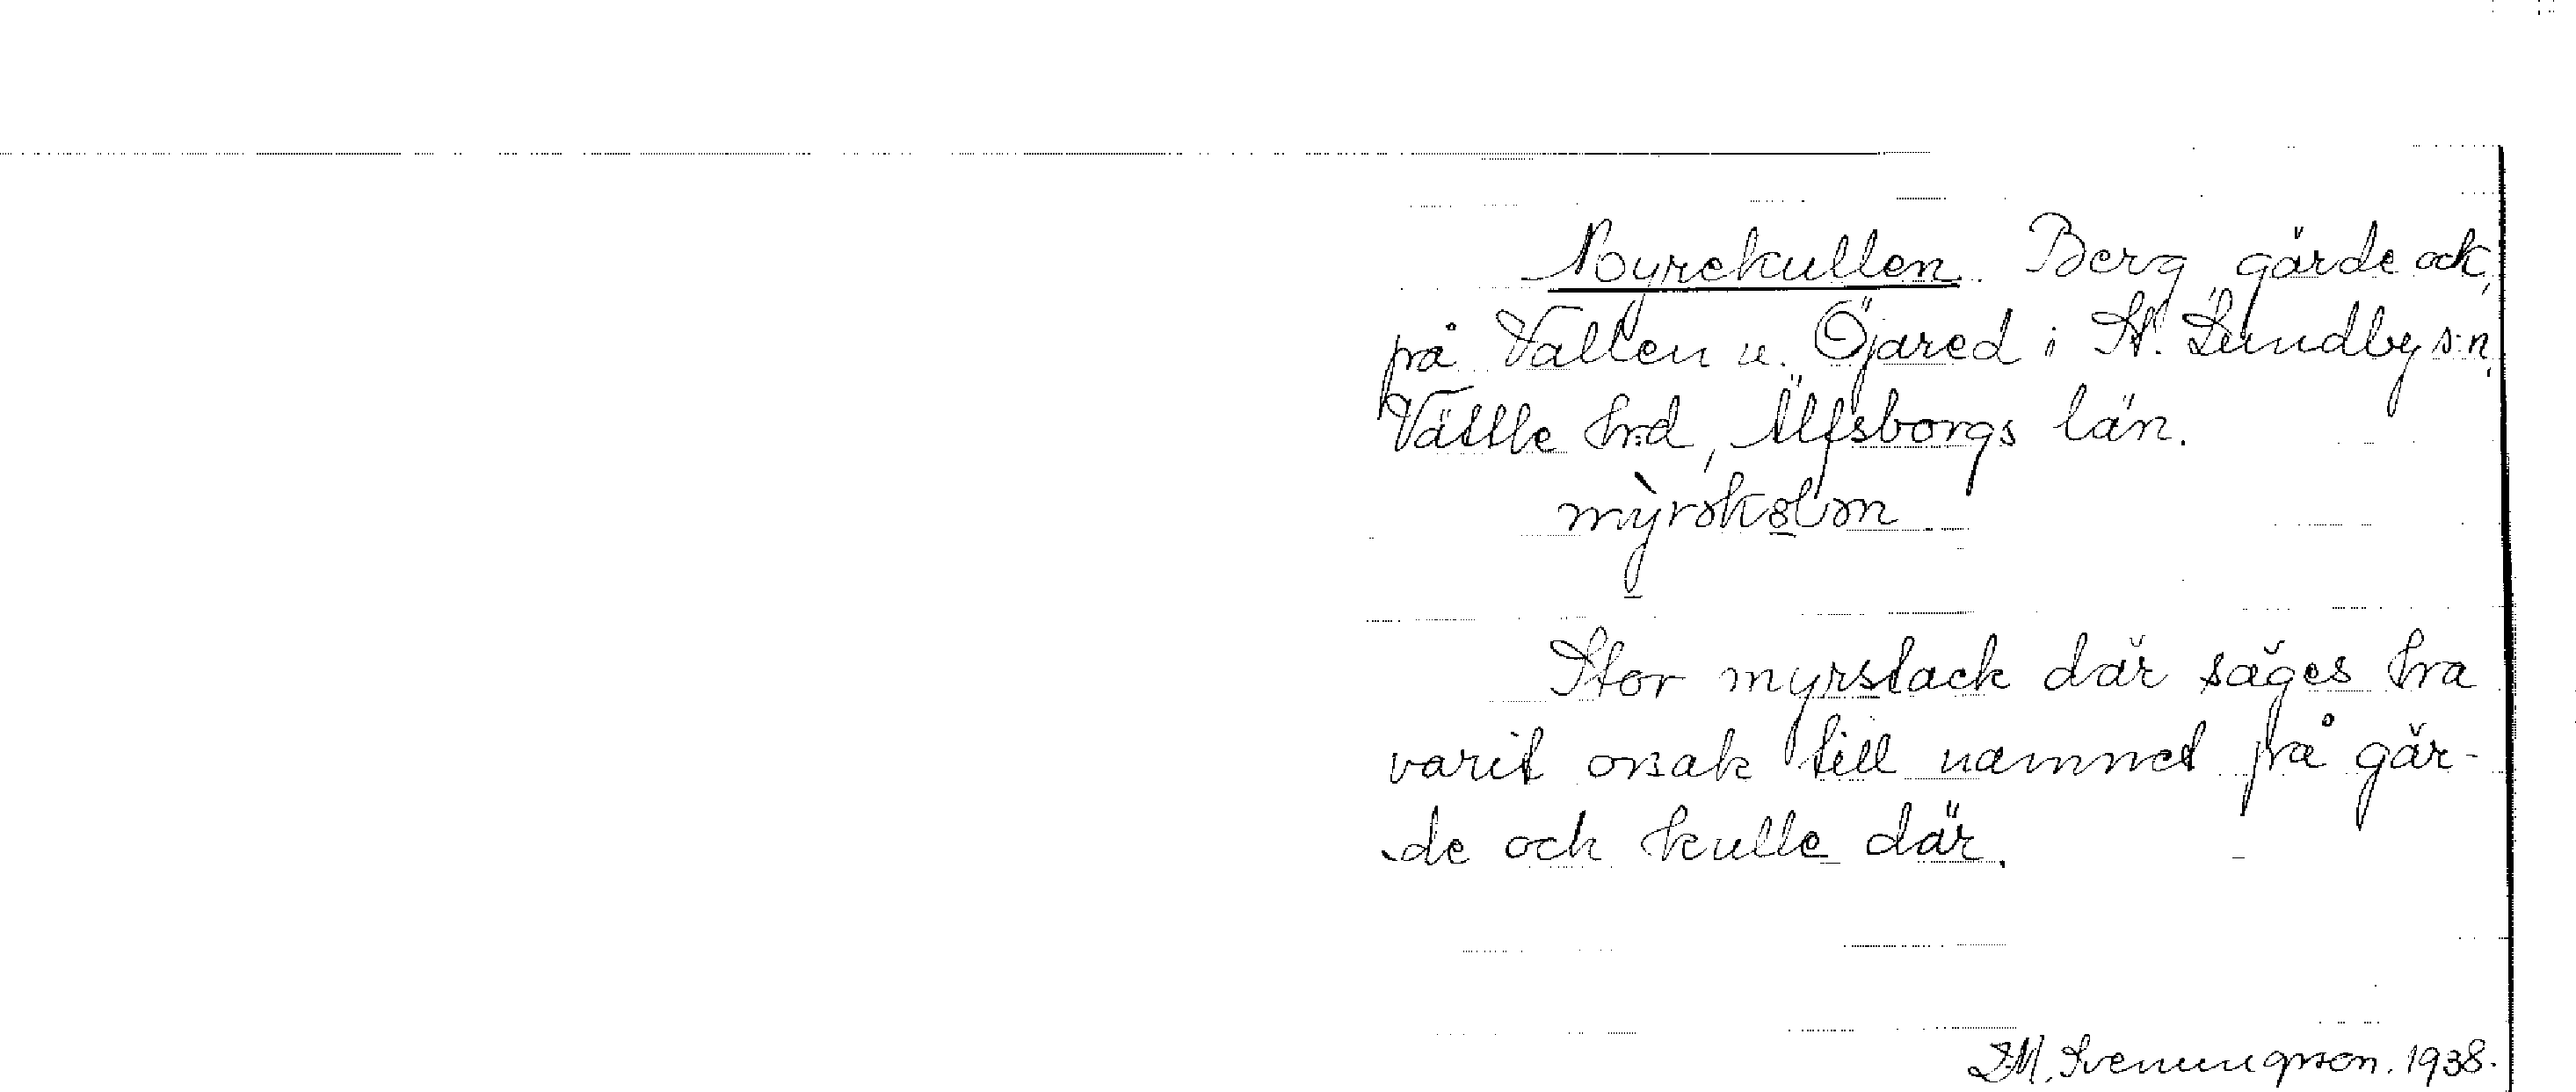 Myrekullen. Berg gärde och
på Vallen u. Öjared i St. Lundby s:n,
Vättle hrd, Älfsborgs län.
mỳrəkɷlən
Stor myrstack där säges ha
varit orsak till namnet på gär-
de och kulle där.
Svenungsson. 1938.